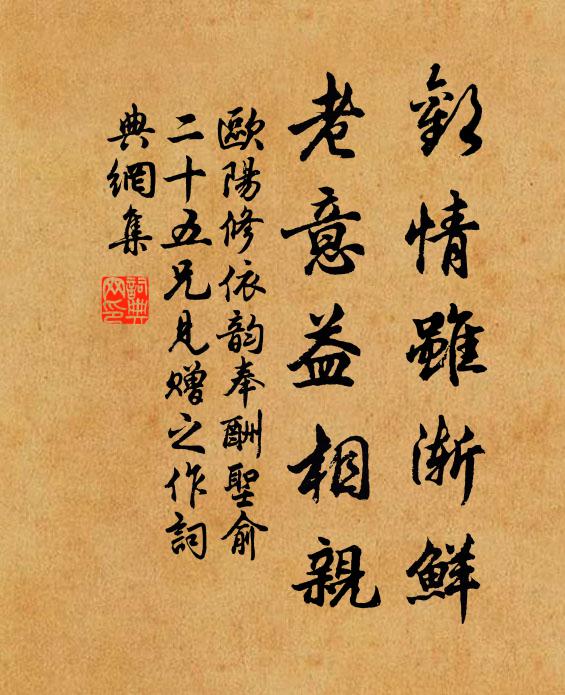 歡情雖漸鮮
老意益相親
歐陽修依韵奉酬聖俞
二十五兄見贈之作詞
典網集
詞典
网印